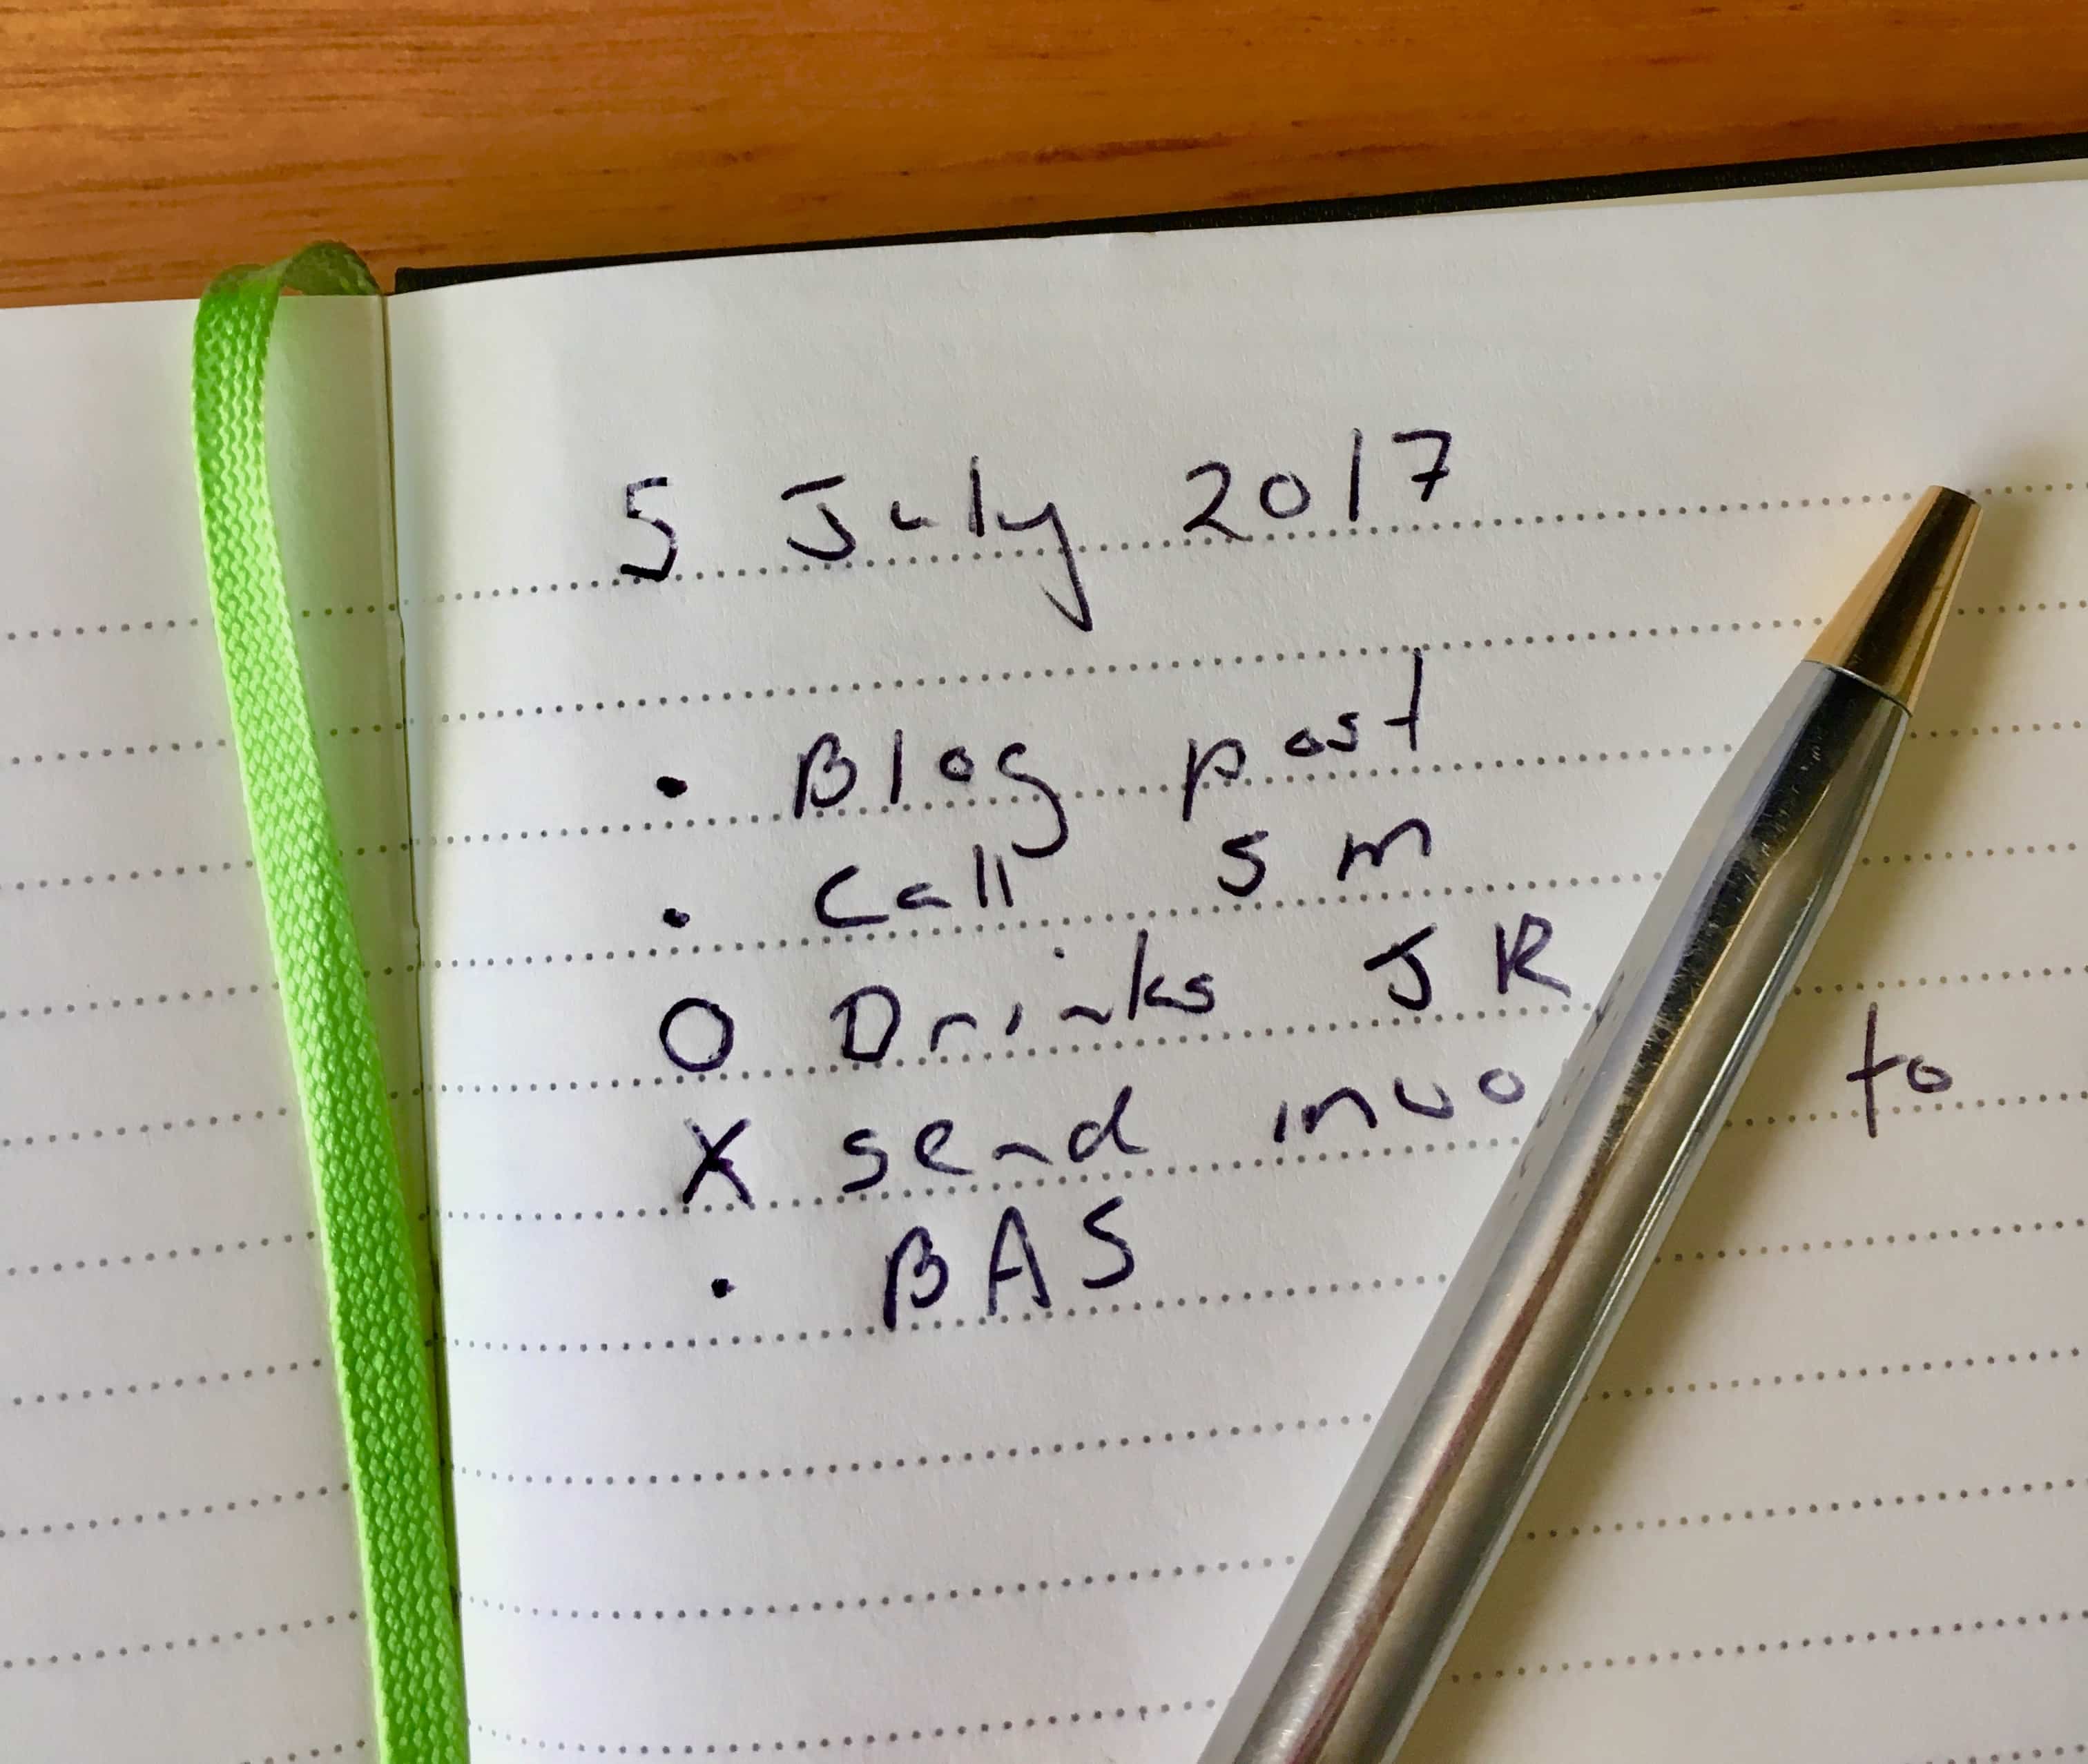 5 July 2017
• Blog post
• Call SM
O Drinks JR
X send to
• BAS